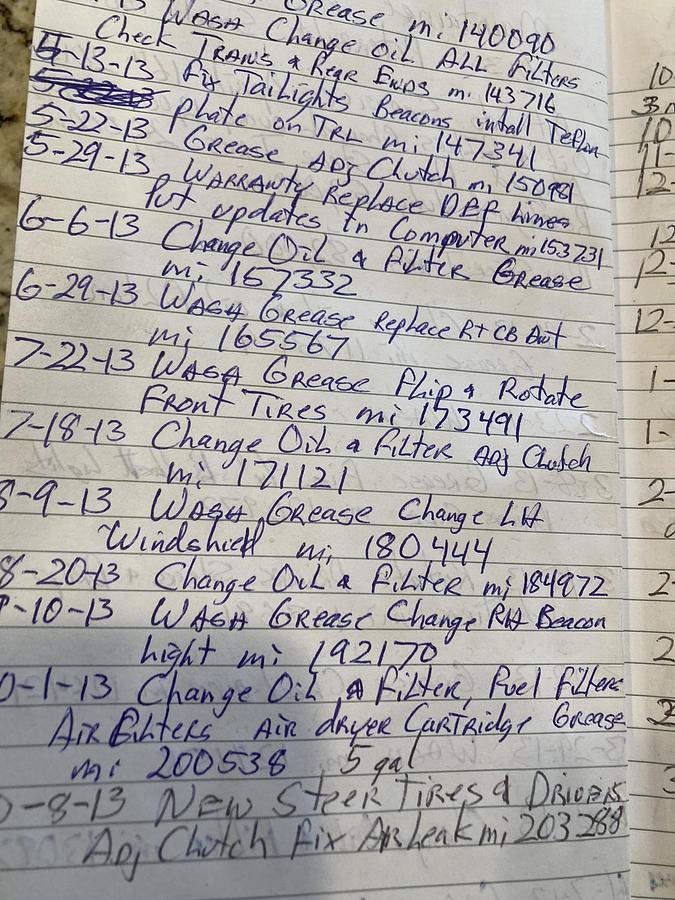 Grease mi 140090
WASH Change oil ALL Filters
Check TRANS & Rear Ends mi 143716
4-13-13 fix Tailights Beacons intall Teflon
Phate on TRL mi 147341
5-22-13 Grease ADJ Clutch mi 150981
5-29-13 WARRANTY Replace DEF Lines
Put updates in Computer mi 153731
6-6-13 Change Oil & Filter Grease
mi 157332
6-29-13 WASH Grease Replace RT CB Ant
mi 165567
7-22-13 WASH Grease Flip & Rotate
Front Tires mi 173491
7-18-13 Change Oil & Filter ADJ Clutch
mi 171121
8-9-13 WASH Grease Change LH
Windshield mi 180444
8-20-13 Change Oil & Filter mi 184972
-10-13 WASH Grease Change RH Beacon
Light mi 192170
0-1-13 Change Oil & Filter, Fuel Filters
Air Filters Air dryer Cartridge Grease
mi 200538 5 gal
0-8-13 New Steer Tires & Drivers
Adj Clutch Fix Air Leak mi 203288